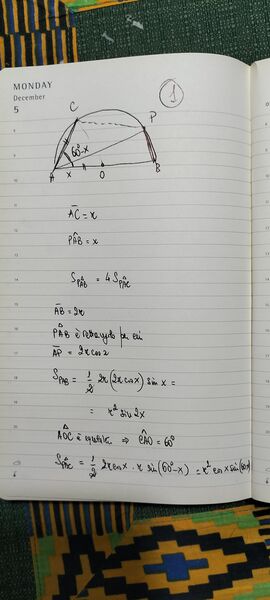 MONDAY
December
5
1
C
P
60°-x
A
x
O
B
AC = r
PÂB = x
S PAB = 4 S PAC
AB = 2r
PAB è rettangolo per cui
AP = 2r cos x
S PAB = 1/2 2r (2r cos x) sin x =
= r² sin 2x
AOC è equilatero ⇒ CÂO = 60°
S PAC = 1/2 2r cos x · r sin (60°-x) = r² cos x sin (60°-x)